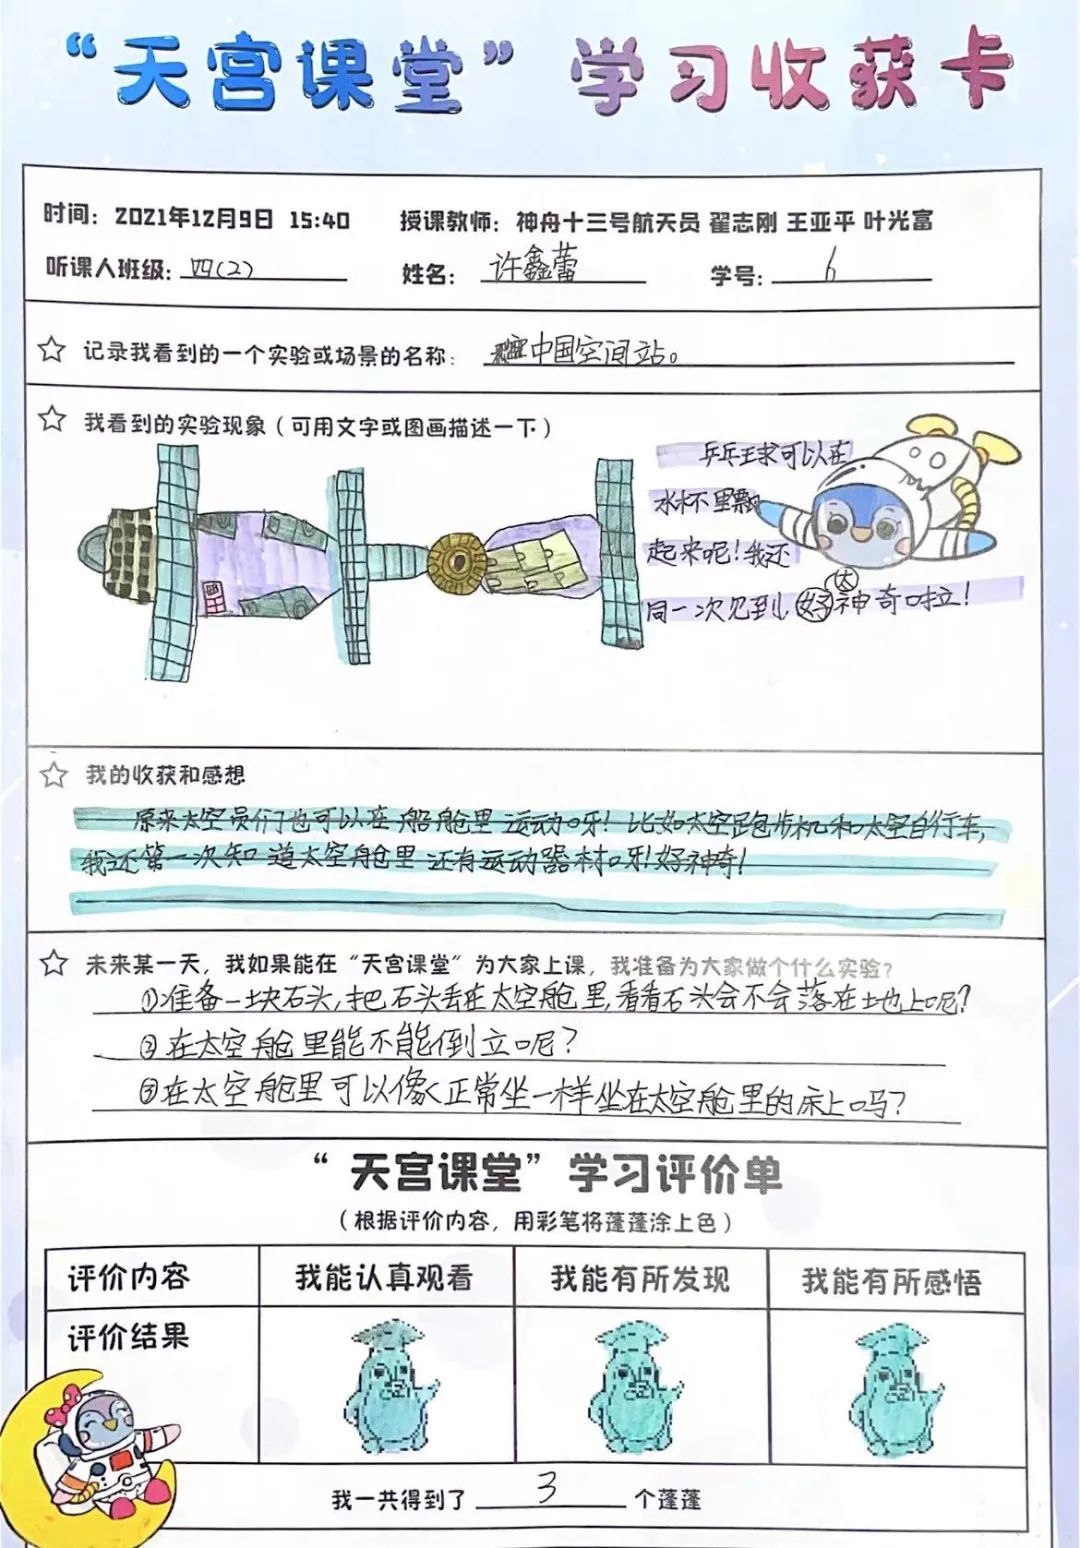 “天宫课堂”学习收获卡
时间：2021年12月9日 15:40 授课教师：神舟十三号航天员 翟志刚 王亚平 叶光富
听课人班级：四(2) 姓名：许鑫蕾 学号：6
记录我看到的一个实验或场景的名称：中国空间站。
我看到的实验现象（可用文字或图画描述一下）
乒乓球可以在
水杯里飘
起来呢！我还
同一次见到，太神奇啦！
我的收获和感想
原来太空员们也可以在船舱里运动呀！比如太空跑步机和太空自行车，
我还第一次知道太空舱里还有运动器材呀！好神奇！
未来某一天，我如果能在“天宫课堂”为大家上课，我准备为大家做个什么实验？
①准备一块石头，把石头丢在太空舱里，看看石头会不会落在地上呢？
②在太空舱里能不能倒立呢？
③在太空舱里可以像正常坐一样坐在太空舱里的床上吗？
“天宫课堂”学习评价单
（根据评价内容，用彩笔将蓬蓬涂上色）
评价内容 我能认真观看 我能有所发现 我能有所感悟
评价结果
我一共得到了 3 个蓬蓬